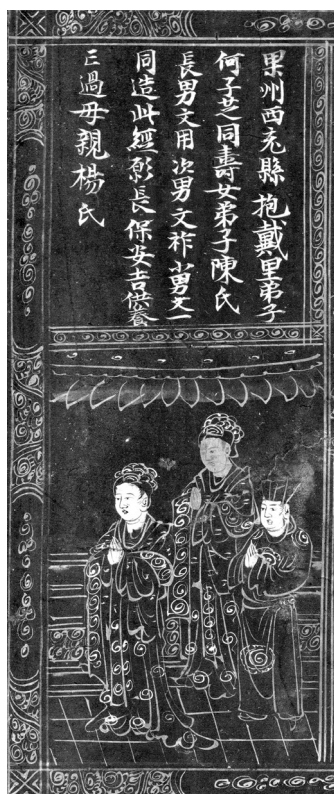 果州西充縣抱戴里弟子
何子芝同壽女弟子陳氏
長男文用次男文祚小男文一
同造此經彰長保安吉供養
亡過母親楊氏